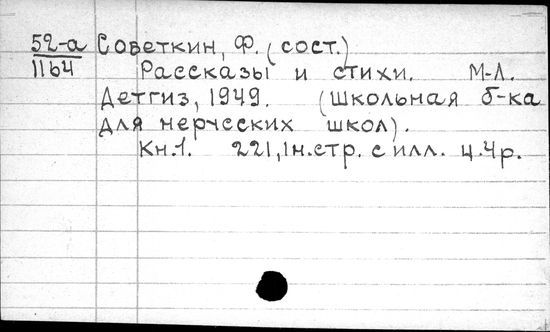 52-а Советкин, Ф. (сост.)
1164 Рассказы и стихи. М-Л.
Детгиз, 1949. (Школьная б-ка
для нерусских школ).
Кн.1. 221,1н.стр. с илл. ц.4р.